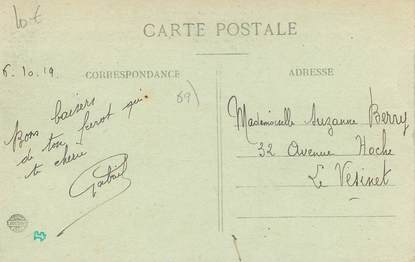 10 €
CARTE POSTALE
6.10.19
CORRESPONDANCE
ADRESSE
89)
Bons baisers
de ton qui
te chérie
Mademoiselle Suzanne Berry
32 Avenue Hoche
Le Vésinet